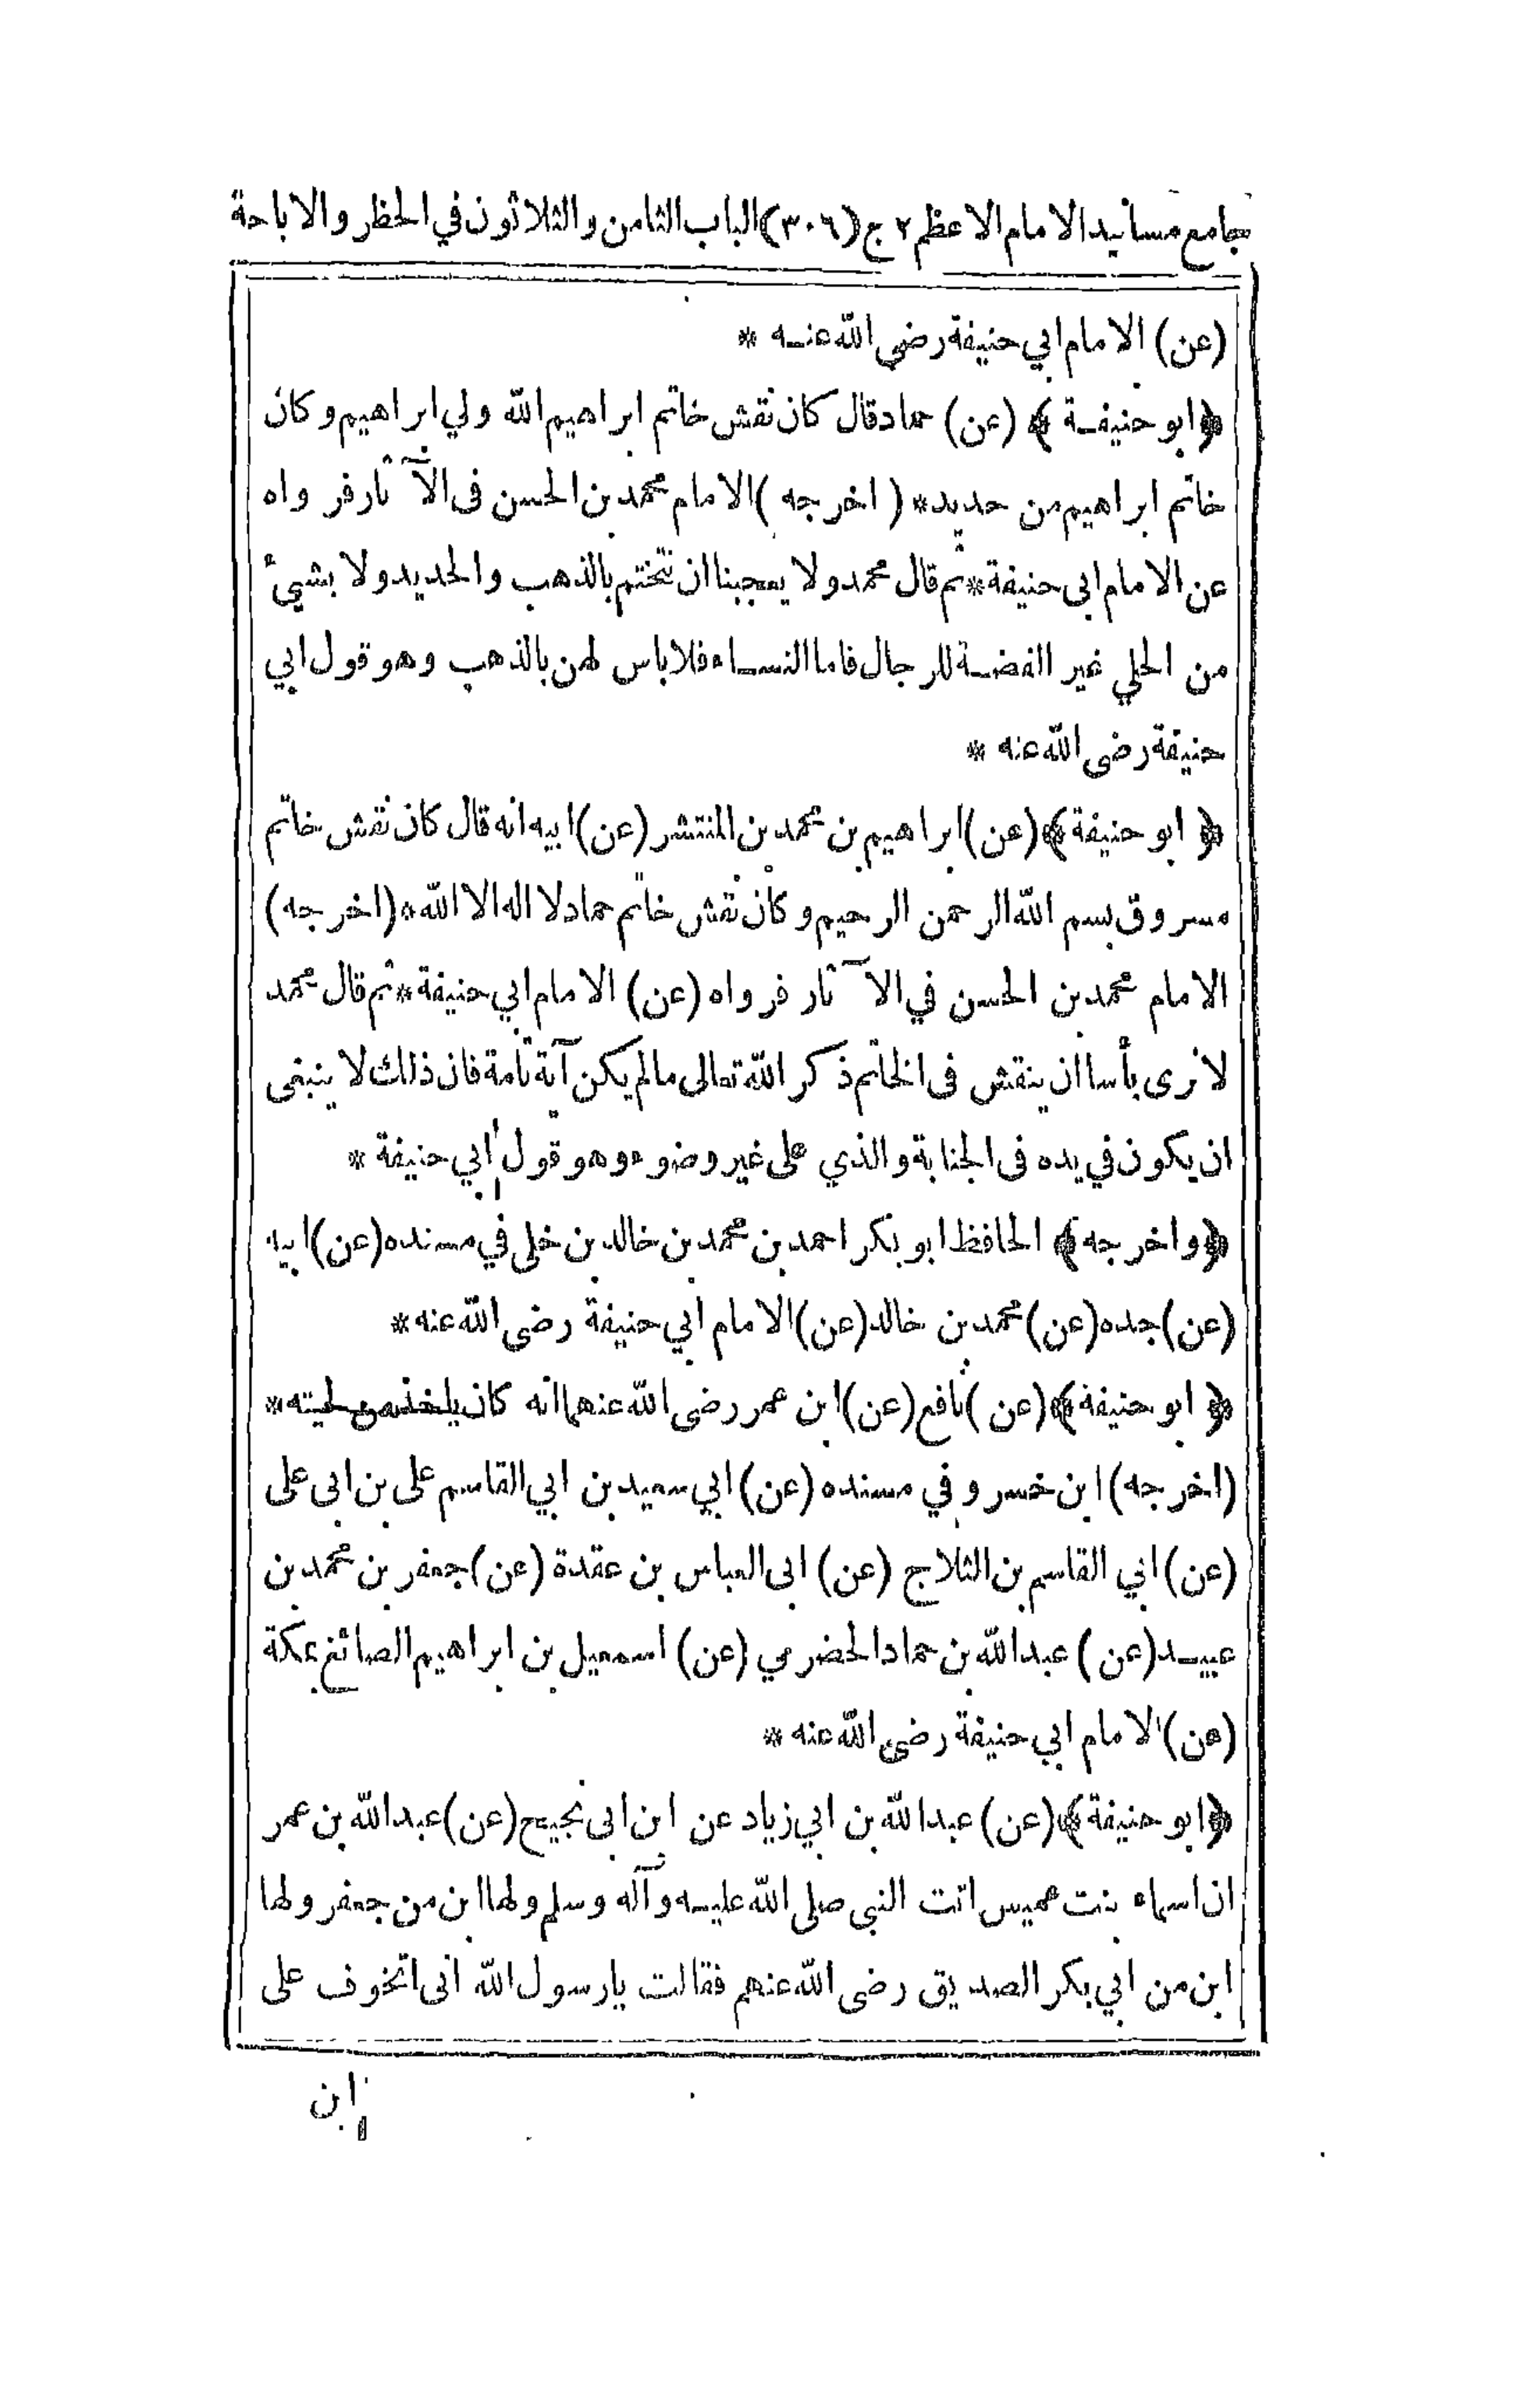 جامع مسانيد الامام الاعظم ٢ ج (٣٠٦) الباب الثامن والثلاثون في الحظر والاباحة
(عن) الامام ابي حنيفة رضى الله عنه *
﴿ابو حنيفة﴾ (عن) حماد قال كان نقش خاتم ابراهيم الله ولي ابراهيم وكان
خاتم ابراهيم من حديد * (اخرجه) الامام محمد بن الحسن فى الآثار فرواه
عن الامام ابى حنيفة * ثم قال محمد ولا يعجبنا ان نتختم بالذهب والحديد ولا بشيئ
من الحلي غير الفضة للرجال فاما النساء فلا باس لهن بالذهب وهو قول ابي
حنيفة رضى الله عنه *
﴿ابو حنيفة﴾ (عن) ابراهيم بن محمد بن المنتشر (عن) ابيه انه قال كان نقش خاتم
مسروق بسم الله الرحمن الرحيم وكان نقش خاتم حماد لا اله الا الله * (اخرجه)
الامام محمد بن الحسن في الآثار فرواه (عن) الامام ابي حنيفة * ثم قال محمد
لا نرى بأسا ان ينقش فى الخاتم ذكر الله تعالى ما لم يكن آية تامة فان ذلك لا ينبغى
ان يكون في يده فى الجنابة والذي على غير وضوء وهو قول ابي حنيفة *
﴿واخرجه﴾ الحافظ ابو بكر احمد بن محمد بن خالد بن خلى في مسنده (عن) ابيه
(عن) جده (عن) محمد بن خالد (عن) الامام ابي حنيفة رضى الله عنه *
﴿ابو حنيفة﴾ (عن) نافع (عن) ابن عمر رضى الله عنهما انه كان ياخذ من لحيته *
(اخرجه) ابن خسرو في مسنده (عن) ابي سعيد بن ابي القاسم على بن ابى على
(عن) ابي القاسم بن الثلاج (عن) ابى العباس بن عقدة (عن) جعفر بن محمد بن
عبيد (عن) عبد الله بن حماد الحضرمي (عن) اسمعيل بن ابراهيم الصائغ بمكة
(عن) الامام ابي حنيفة رضى الله عنه *
﴿ابو حنيفة﴾ (عن) عبد الله بن ابي زياد عن ابن ابى نجيح (عن) عبد الله بن عمر
ان اسماء بنت عميس اتت النبى صلى الله عليه وآله وسلم ولها ابن من جعفر ولها
ابن من ابي بكر الصديق رضى الله عنهم فقالت يا رسول الله انى اتخوف على
ابن